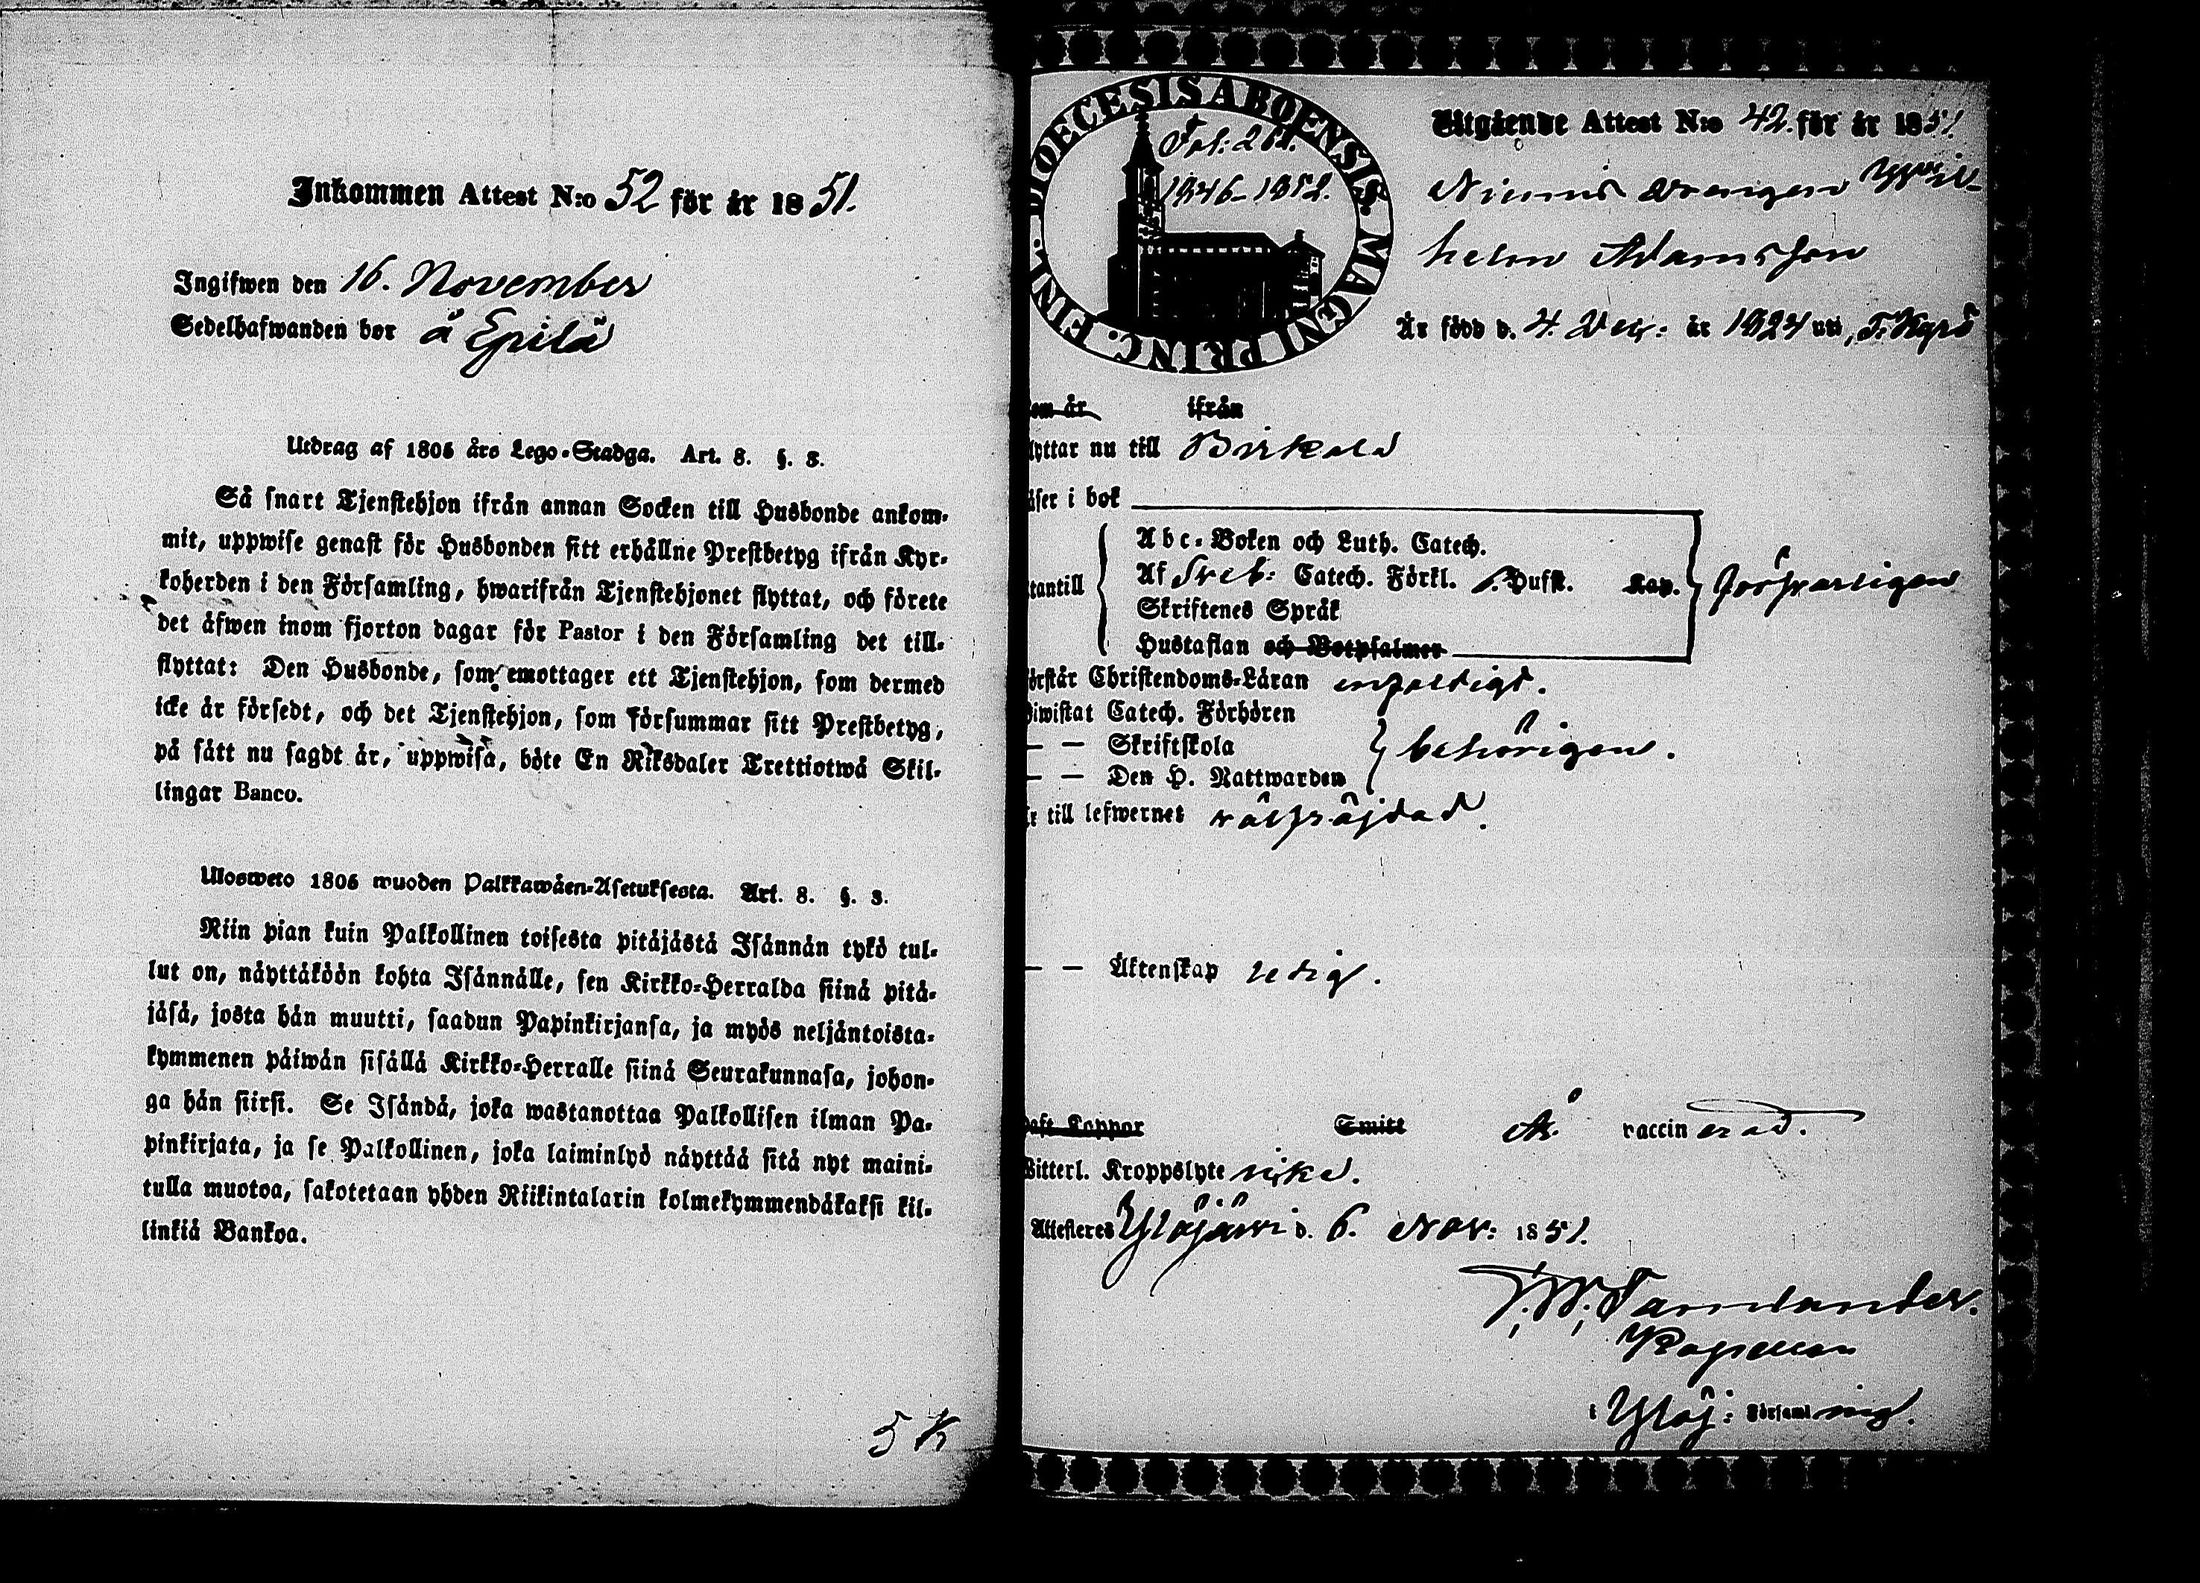 Inkommen Attest N:o 52 för år 1851.
Ingifwen den 16. November
Sedelhafwanden bor å Epilä
Utdrag af 1805 års Lego-Stadga. Art. 8. §. 3.
Så snart Tjenstehjon ifrån annan Socken till Husbonde ankom-
mit, uppwise genast för Husbonden sitt erhållne Prestbetyg ifrån Kyr-
koherden i den Församling, hwarifrån Tjenstehjonet flyttat, och förete
det äfwen inom fjorton dagar för Pastor i den Församling det till-
flyttat: Den Husbonde, som emottager ett Tjenstehjon, som dermed
icke är försedt, och det Tjenstehjon, som försummar sitt Prestbetyg,
på sätt nu sagdt är, uppwisa, böte En Riksdaler Trettiotwå Skil-
lingar Banco.
Ulosweto 1805 wuoden Palkkawäen-Asetuksesta. Art. 8. §. 3.
Niin pian kuin Palkollinen toisesta pitäjästä Isännän tykö tul-
lut on, näyttäköön kohta Isännälle, sen Kirkko-Herralda siinä pitä-
jäsä, josta hän muutti, saadun Papinkirjansa, ja myös neljäntoista-
kymmenen päiwän sisällä Kirkko-Herralle siinä Seurakunnasa, johon-
ga hän siirsi. Se Isändä, joka wastanottaa Palkollisen ilman Pa-
pinkirjata, ja se Palkollinen, joka laiminlyö näyttää sitä nyt maini-
tulla muotoa, sakotetaan yhden Riikintalarin kolmekymmendäkaksi kil-
linkiä Bankoa.
5 K
DIOECESIS ABOENSIS. MAGNI PRINC. FINL.
Fol: 261.
1846-1852.
Utgående Attest N:o 42. för år 1851.
drengen Wil-
helm Adamsson
Är född d. 4. Dec: år 1824 uti T. Kyrö
om är ifrån
lyttar nu till Birkala
äser i bok
tantill
Abc-Boken och Luth. Catech.
Af Sveb: Catech. Förkl. Husst. Kap.
Skriftenes Språk
Hustaflan och Botpsalmer
försvarligen
örstår Christendoms-Läran enfaldigt.
iwistat Catech. Förhören
— — Skriftskola
— — Den H. Nattwarden
behörigen.
r till lefwernet välfräjdad.
— — Äktenskap ledig.
aft Koppor Smitt Är vaccinerad.
Witterl. Kroppslyte icke.
Attesteres Ylöjärwi d. 6. Nov: 1851.
Tamlander.
Kapellan
i Ylöj: Församlning.